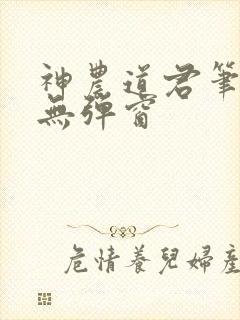 神農道君筆
無彈窗
危情養兒婦產